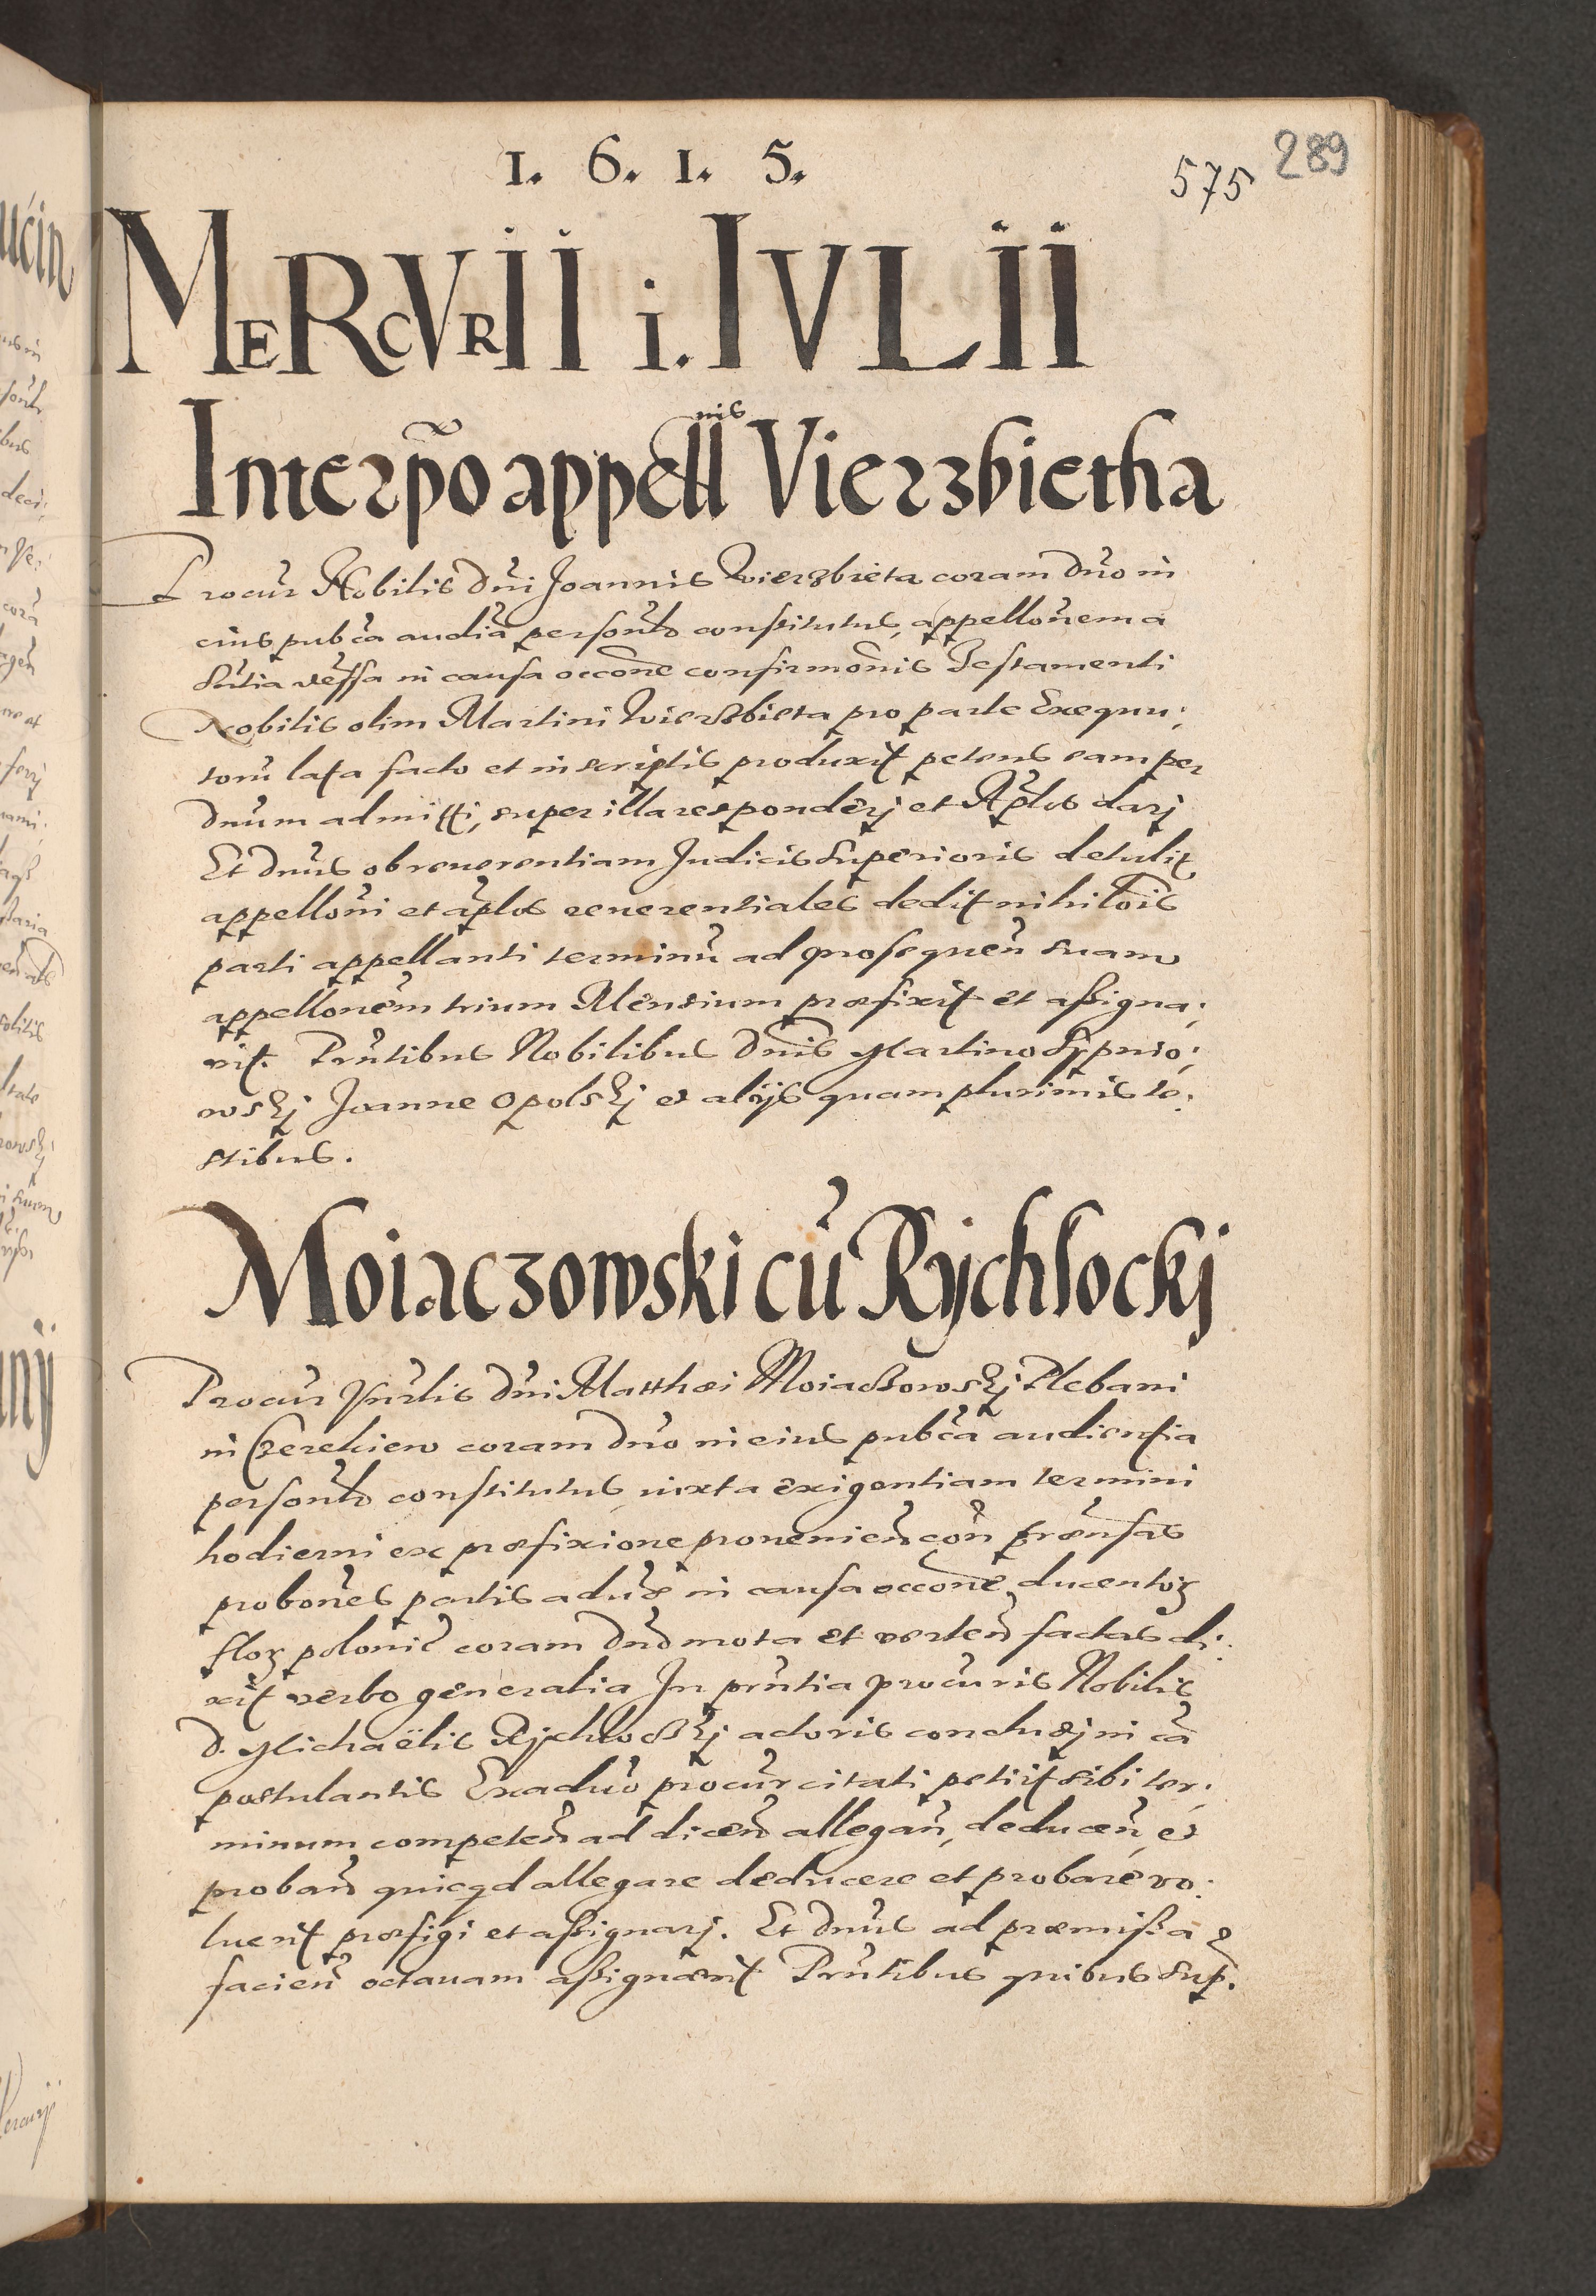 1. 6. 1. 5.
575 289
MERCVRII 1. IVLII
Interpo appellnis Vierzbietha
Procur Nobilis Dni Joannis Wierzbieta coram Dno in
eius pubca audia personlr constitutus, appellonem a
sntia diffa in causa occone confirmonis Testamenti
Nobilis olim Martini Wierzbieta pro parte Exequu:
toru lata facto et in scriptis produxit petens eam per
Dnum admitti, super illa responderj et Aplos darj
Et Dnus ob reuerentiam Judicis Superioris detulit
appelloni et aplos reuerentiales dedit nihilois
parti appellanti terminu ad prosequen suam
appellonem trium Mensium præfixit et assigna:
vit. Prntibus Nobilibus Dnis Martino Sypnio:
wskj Joanne Opolskj et alijs quam plurimis te:
stibus.
Moiaczowski cu Rychlockj
Procur Vnrlis Dni Matthæi Moiaczowskj Plebani
in coram Dno in eius pubca audientia
personlr constitutus iuxta exigentiam termini
hodierni ex præfixione prouenien con prætensas
probones partis aduersæ in causa occone ducentor
flor polonic coram Dno mota et verten factas di:
xit verbo generalia In prntia procuris Nobilis
D. Michaëlis Rychlockj actoris concludj in ca
postulantis Exaduo procur citati petiit sibi ter:
minum competen ad dicen allegan, deducen, et
proban quicqd allegare deducere et probare vo:
luerit præfigi et assignarj. Et Dnus ad præmissa
facien octauam assignauit Prntibus quibus sup.